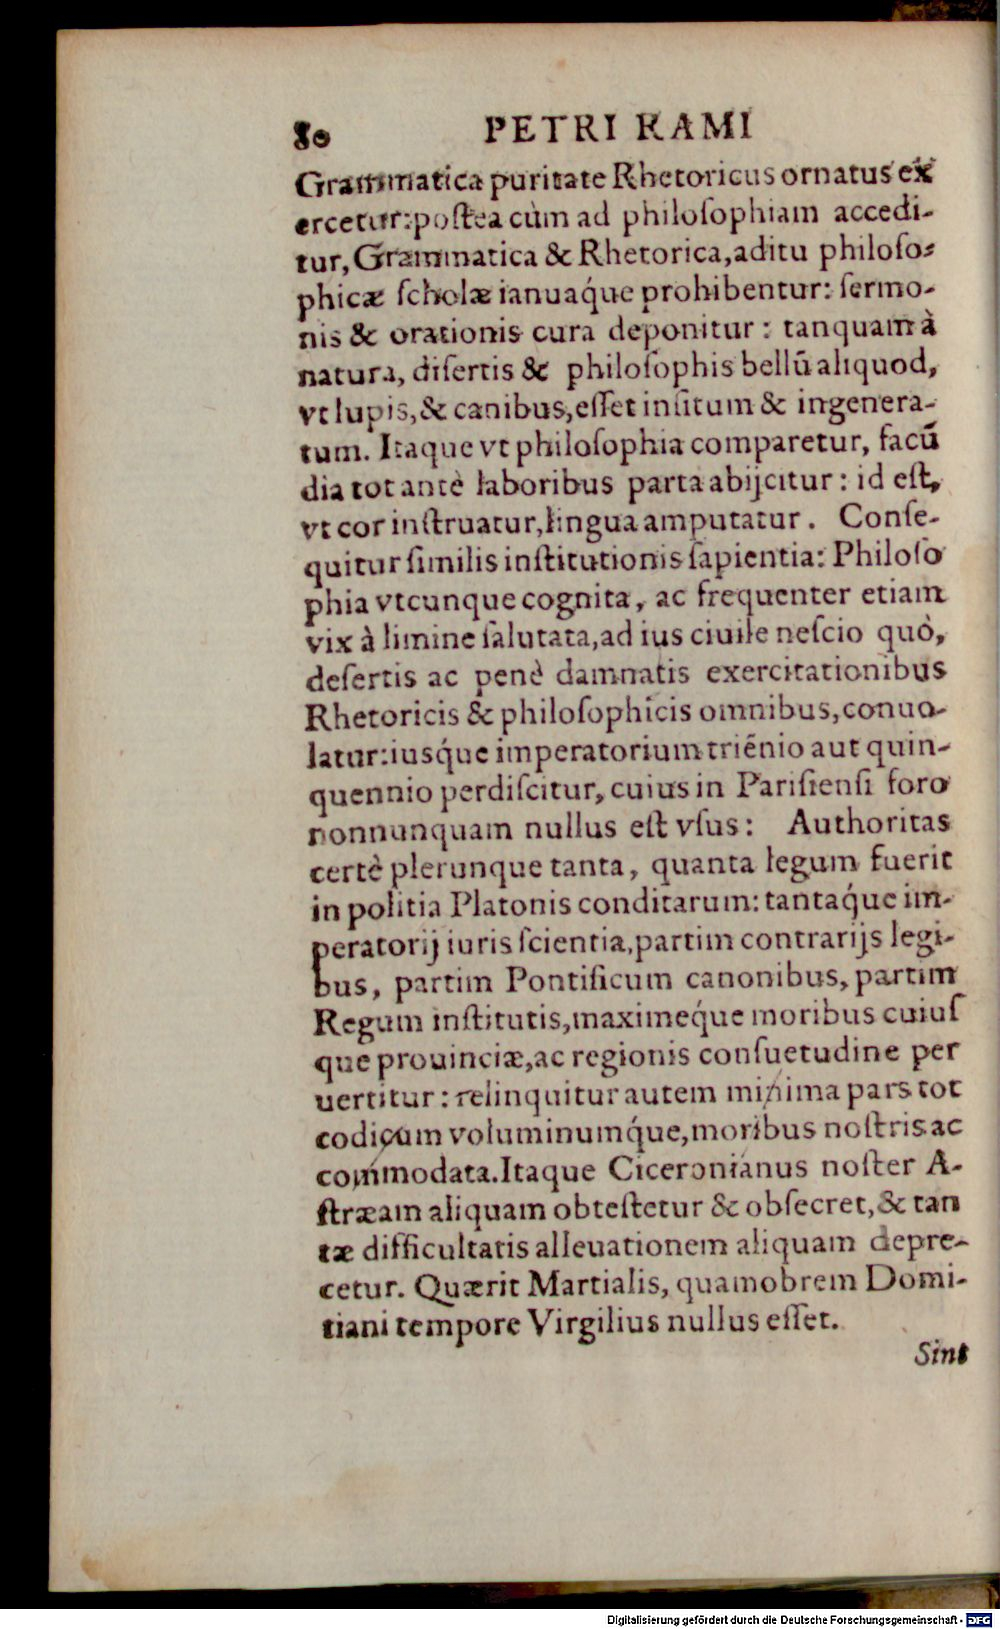 80 PETRI RAMI
Grammatica puritate Rhetoricus ornatus ex
ercetur: postea cùm ad philoſophiam accedi-
tur, Grammatica & Rhetorica, aditu philoſo-
phicæ ſcholæ ianuaq́ue prohibentur: ſermo-
nis & orationis cura deponitur: tanquam à
natura, diſertis & philoſophis bellū aliquod,
vt lupis, & canibus, eſſet inſitum & ingenera-
tum. Itaque vt philoſophia comparetur, facū
dia tot antè laboribus parta abijcitur: id eſt,
vt cor inſtruatur, lingua amputatur. Conſe-
quitur ſimilis inſtitutionis ſapientia: Philoſo
phia vtcunque cognita, ac frequenter etiam
vix à limine ſalutata, ad ius ciuile neſcio quò,
deſertis ac penè damnatis exercitationibus
Rhetoricis & philoſophicis omnibus, conuo-
latur: iusq́ue imperatorium triēnio aut quin-
quennio perdiſcitur, cuius in Pariſienſi foro
nonnunquam nullus eſt vſus: Authoritas
certè plerunque tanta, quanta legum fuerit
in politia Platonis conditarum: tantaq́ue im-
peratorij iuris ſcientia, partim contrarijs legi-
bus, partim Pontificum canonibus, partim
Regum inſtitutis, maximeq́ue moribus cuiuſ
que prouinciæ, ac regionis conſuetudine per
uertitur: relinquitur autem minima pars tot
codicum voluminumq́ue, moribus noſtris ac
commodata. Itaque Ciceronianus noſter A-
ſtræam aliquam obteſtetur & obſecret, & tan
tæ difficultatis alleuationem aliquam depre-
cetur. Quærit Martialis, quamobrem Domi-
tiani tempore Virgilius nullus eſſet.
Sint
Digitalisierung gefördert durch die Deutsche Forschungsgemeinschaft - DFG